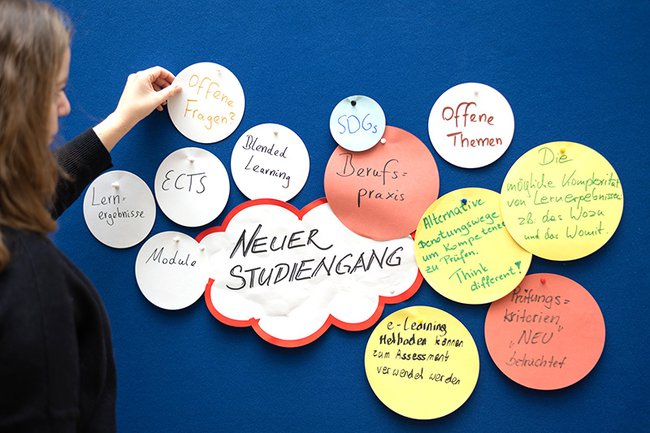 Offene
Fragen?
Blended
Learning
ECTS
Lern=
ergebnisse
Module
NEUER
STUDIENGANG
SDGs
Berufs=
praxis
Offene
Themen
Die
mögliche Komplexität
von Lernerpebnissen
zB. das Wozu
und das Womit.
Alternative
Benotungswege
um Kompetenz
zu Prüfen.
Think
different!
Prüfungs=
kriterien
"NEU"
betrachtet
e-Learning
Methoden können
zum Assessment
verwendet werden